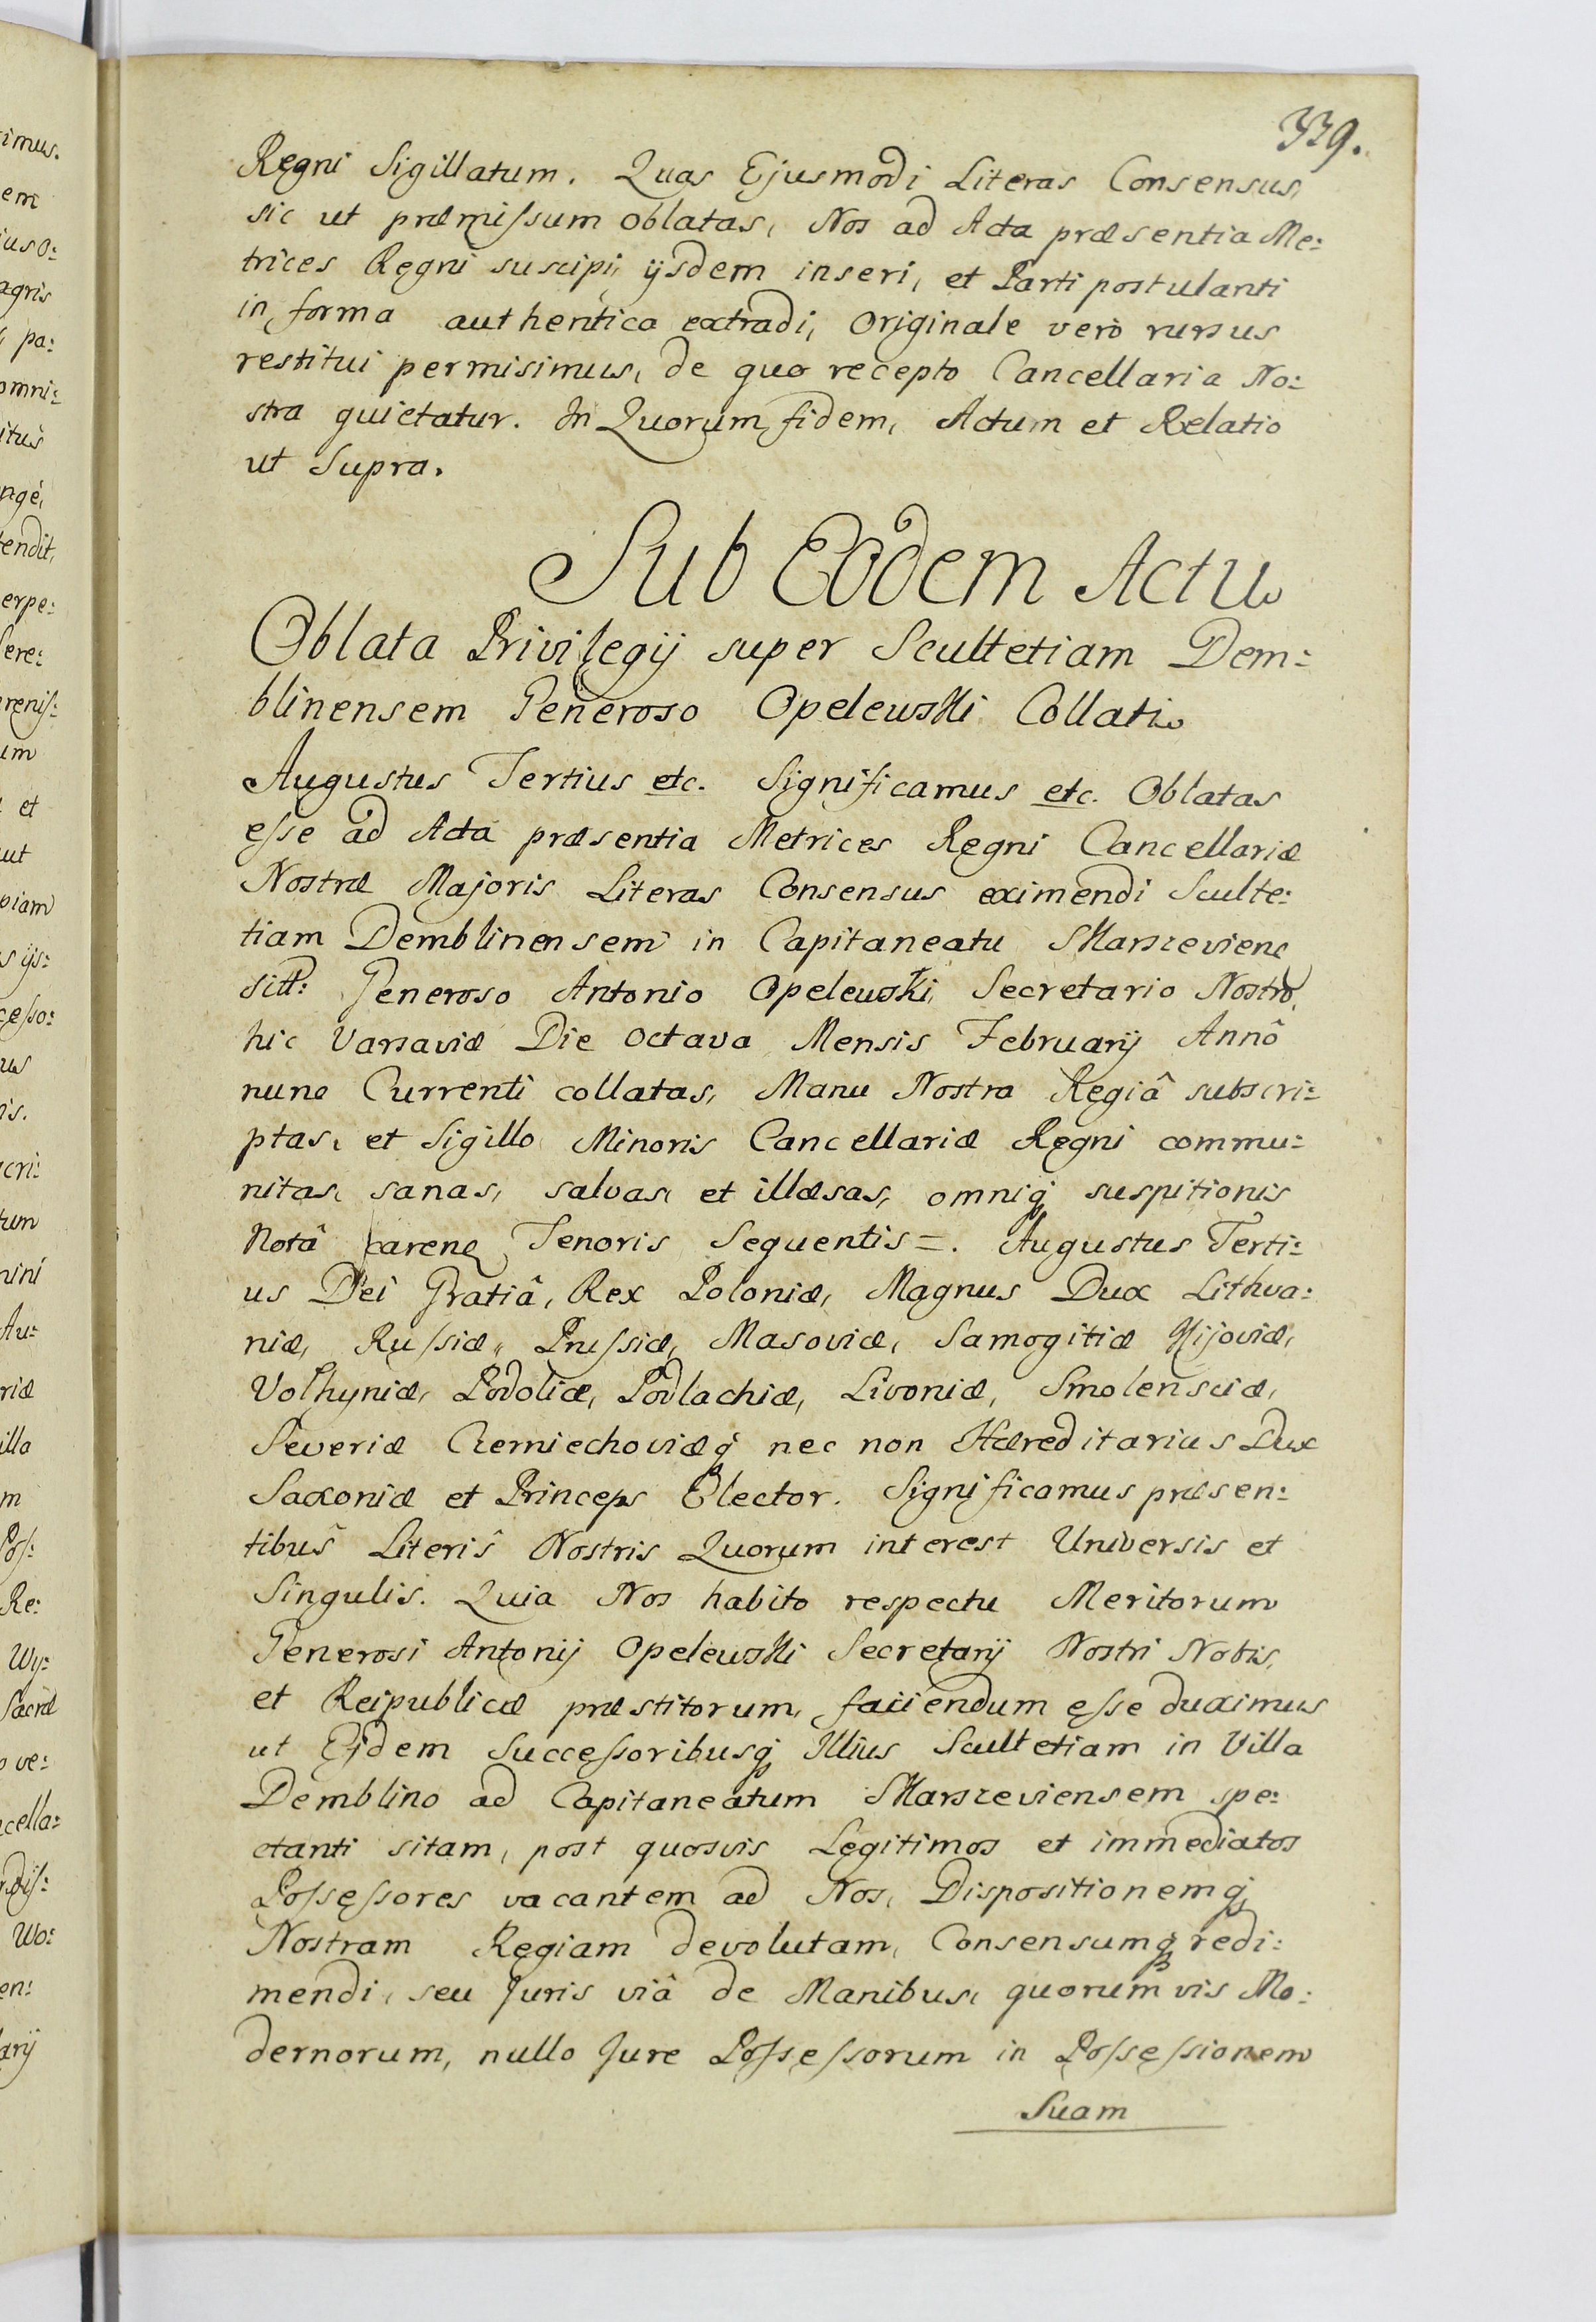 339.
Regni Sigillatum. Quas Ejusmodi Literas Consensus,
sic ut præmissum oblatas, Nos ad Acta præsentia Me:
trices Regni suscipi, ijsdem inseri, et Parti postulanti
in forma authentica extradi, Originale verò rursus
restitui permisimus, de quo recepto Cancellaria No:
stra quietatur. In Quorum fidem, Actum et Relatio
ut Supra.
Sub Eodem Actu
Oblata Privilegij super Scultetiam Dem:
blinensem Generoso Opelewski Collati
Augustus Tertius etc. Significamus etc. Oblatas
esse ad Acta præsentia Metrices Regni Cancellariæ
Nostræ Majoris Literas Consensus eximendi Sculte:
tiam Demblinensem in Capitaneatu
Generoso Antonio Opelewski, Secretario Nostro,
hic Varsaviæ Die Octava Mensis Februarij Annô
nunc Currenti collatas, Manu Nostra Regiâ subscri:
ptas, et Sigillo Minoris Cancellariæ Regni commu:
nitas, sanas, salvas, et illæsas, omniq; suspitionis
Notâ carene Tenoris Sequentis =. Augustus Terti:
us Dei Gratiâ, Rex Poloniæ, Magnus Dux Lithva:
niæ, Russiæ, Prussiæ, Masoviæ, Samogitiæ Kijoviæ,
Volhyniæ, Podoliæ, Podlachiæ, Livoniæ, Smolensciæ,
Severiæ Czerniechoviæq; nec non Hæreditarius Dux
Saxoniæ et Princeps Elector. Significamus præsen:
tibus Literis Nostris Quorum interest Universis et
Singulis. Quia Nos habito respectu Meritorum
Generosi Antonij Opelewski Secretarij Nostri Nobis,
et Reipublicæ præstitorum, faciendum esse duximus
ut Ejdem Successoribusq; Illius Scultetiam in Villa
Demblino ad Capitaneatum spe:
ctanti sitam, post quosvis Legitimos et immediatos
Possessores vacantem ad Nos, Dispositionemq;
Nostram Regiam devolutam, Consensumq; redi:
mendi, seu Juris viâ de Manibus, quorumvis Mo:
dernorum, nullo Jure Possessorum in Possessionem
Suam